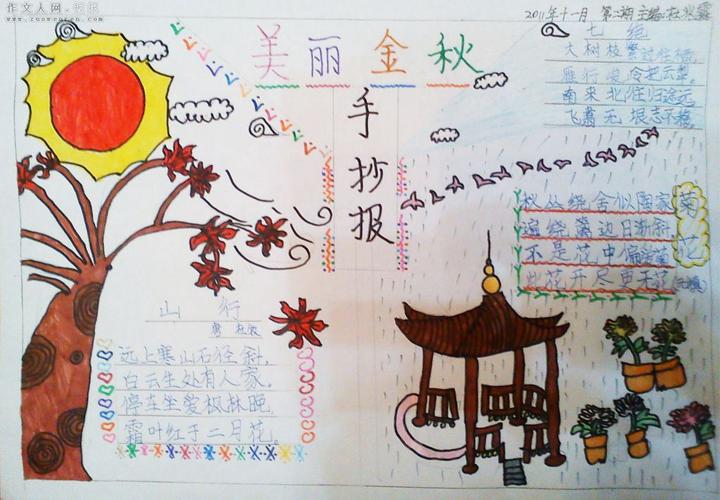 作文人网
www.zuowenren.cn
2011年十一月 第二期 主编:杜
美丽金秋
手抄报
七绝
大树枝繁
雁行
南来北往归途远
飞翥无垠志不移
秋丛绕舍似陶家
遍绕篱边日渐斜
不是花中偏爱菊
此花开尽更无花
菊花
山行
远上寒山石径斜,
白云生处有人家。
停车坐爱枫林晚,
霜叶红于二月花。